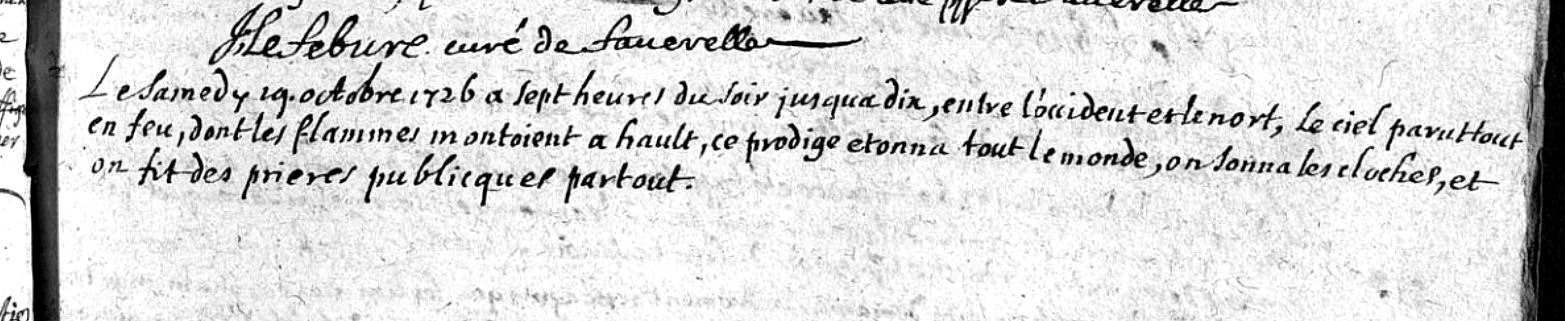 JLefebure. curé de Faverelle
Le Samedy 19. octobre 1726 a sept heures du soir jusqua dix, entre l'occident et le nort, le ciel parut tout
en feu, dont les flammes montoient a hault, ce prodige etonna tout le monde, on sonna les cloches, et
on fit des prieres publicques partout.